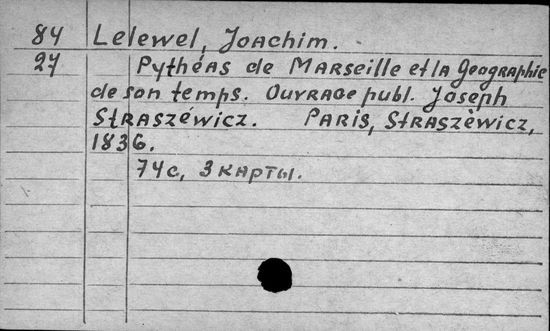 84 Lelewel, Joachim.
27 Pythéas de Marseille et la Geographie
de son temps. Ouvrage publ. Joseph
Straszéwicz. Paris, Straszèwicz,
1836.
74c, 3 карты.